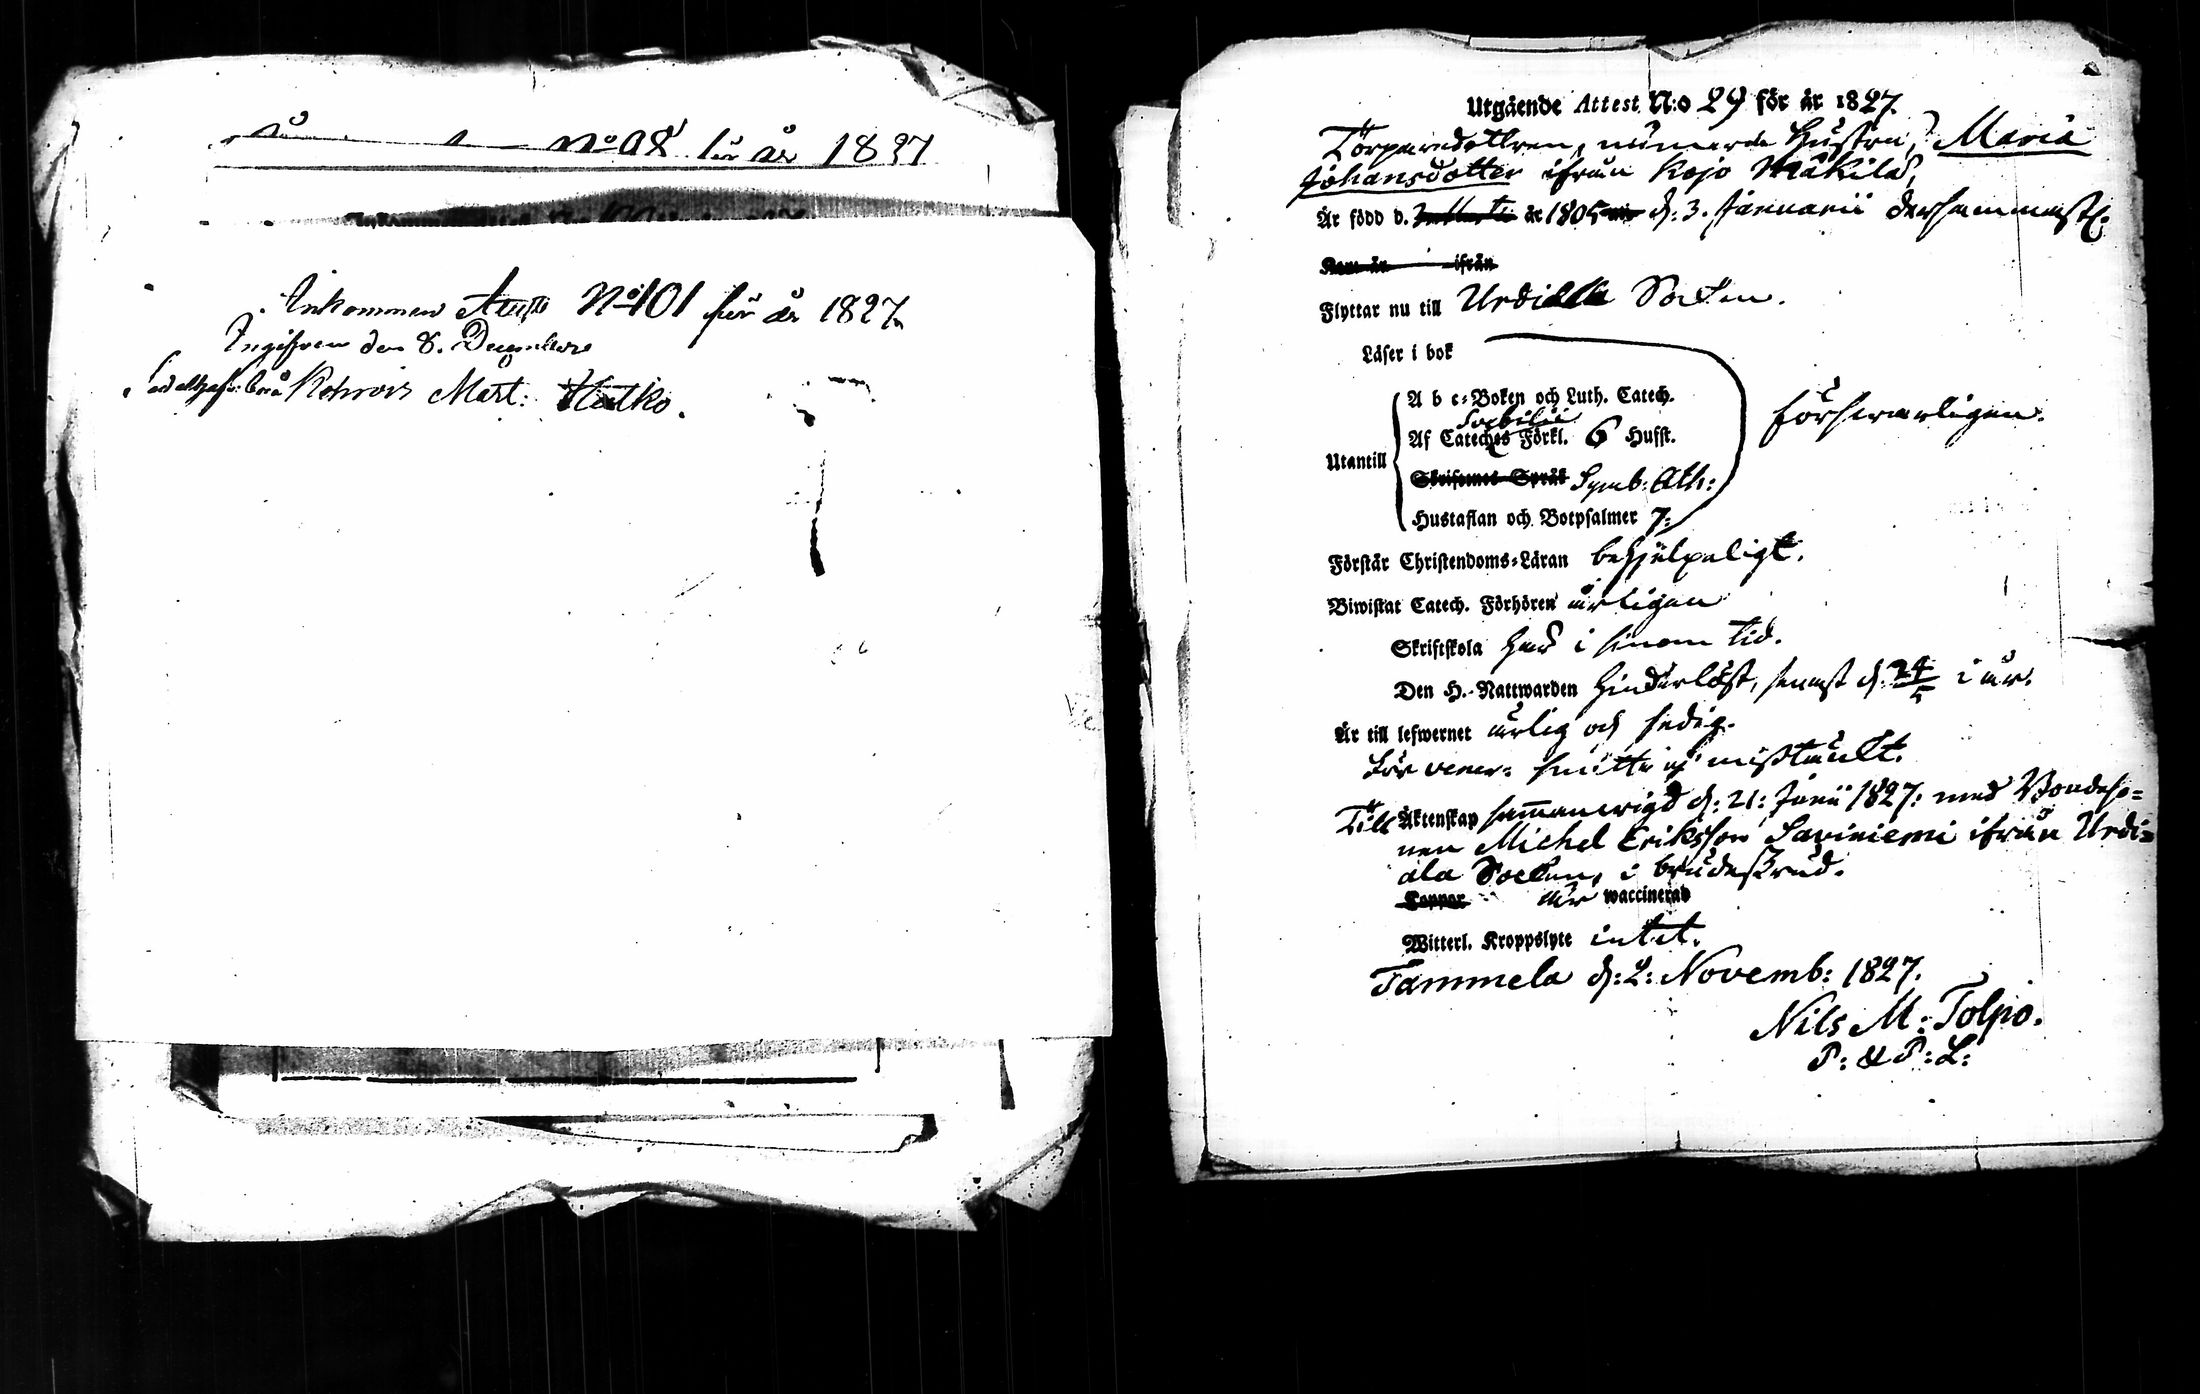 No 98 för år 1827
Inkommen Attest No 101 för år 1827
Ingifven den 8. December
Kohvois Mart: Hutko.
Utgående Attest N:o 29 för år 1827.
Torparedottren, numera Hustru, Maria
Johansdotter ifrån Kojo Mäkilä,
Är född d. år 1805 d: 3. Januarii dersammast.
Kom år ifrån
Flyttar nu till Urdiala Socken.
Läser i bok
A b c-Boken och Luth. Catech.
Svebilii
Af Cateches Förkl. 6 Hufst.
försvarligen.
Utantill
Skriftenes Språk Symb: Ath:
Hustaflan och Botpsalmer 7:
Förstår Christendoms-Läran behjelpeligt.
Biwistat Catech. Förhören årligen
Skriftskola här i sinom tid.
Den H. Nattwarden hinderlöst, senast d. 24/5 i år.
Är till lefwernet ärlig och sedig.
För vener: smitta ej misstänkt.
Till Äktenskap sammanvigd d: 21: Junii 1827: med Bondeso=
nen Michel Eriksson Saviniemi ifrån Urdi=
ala Socken, i brudeskrud.
Koppor är waccinerad
Witterl. Kroppslyte intet.
Tammela d: 2: Novemb: 1827.
Nils M: Tolpo.
P: & P: L: